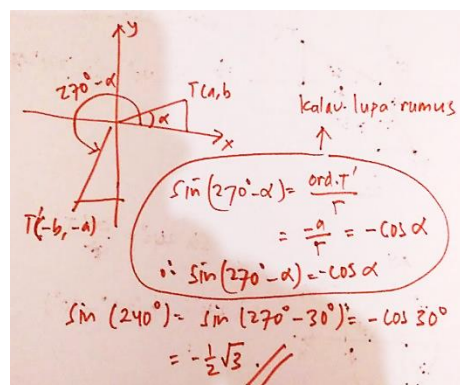 y
270°-α
T(a,b
α
x
T'(-b,-a)
kalau lupa rumus
sin(270°-α) = ord.T'/r
= -a/r = -cos α
∴ sin(270°-α) = -cos α
sin (240°) = sin (270°-30°) = -cos 30°
= -1/2√3.